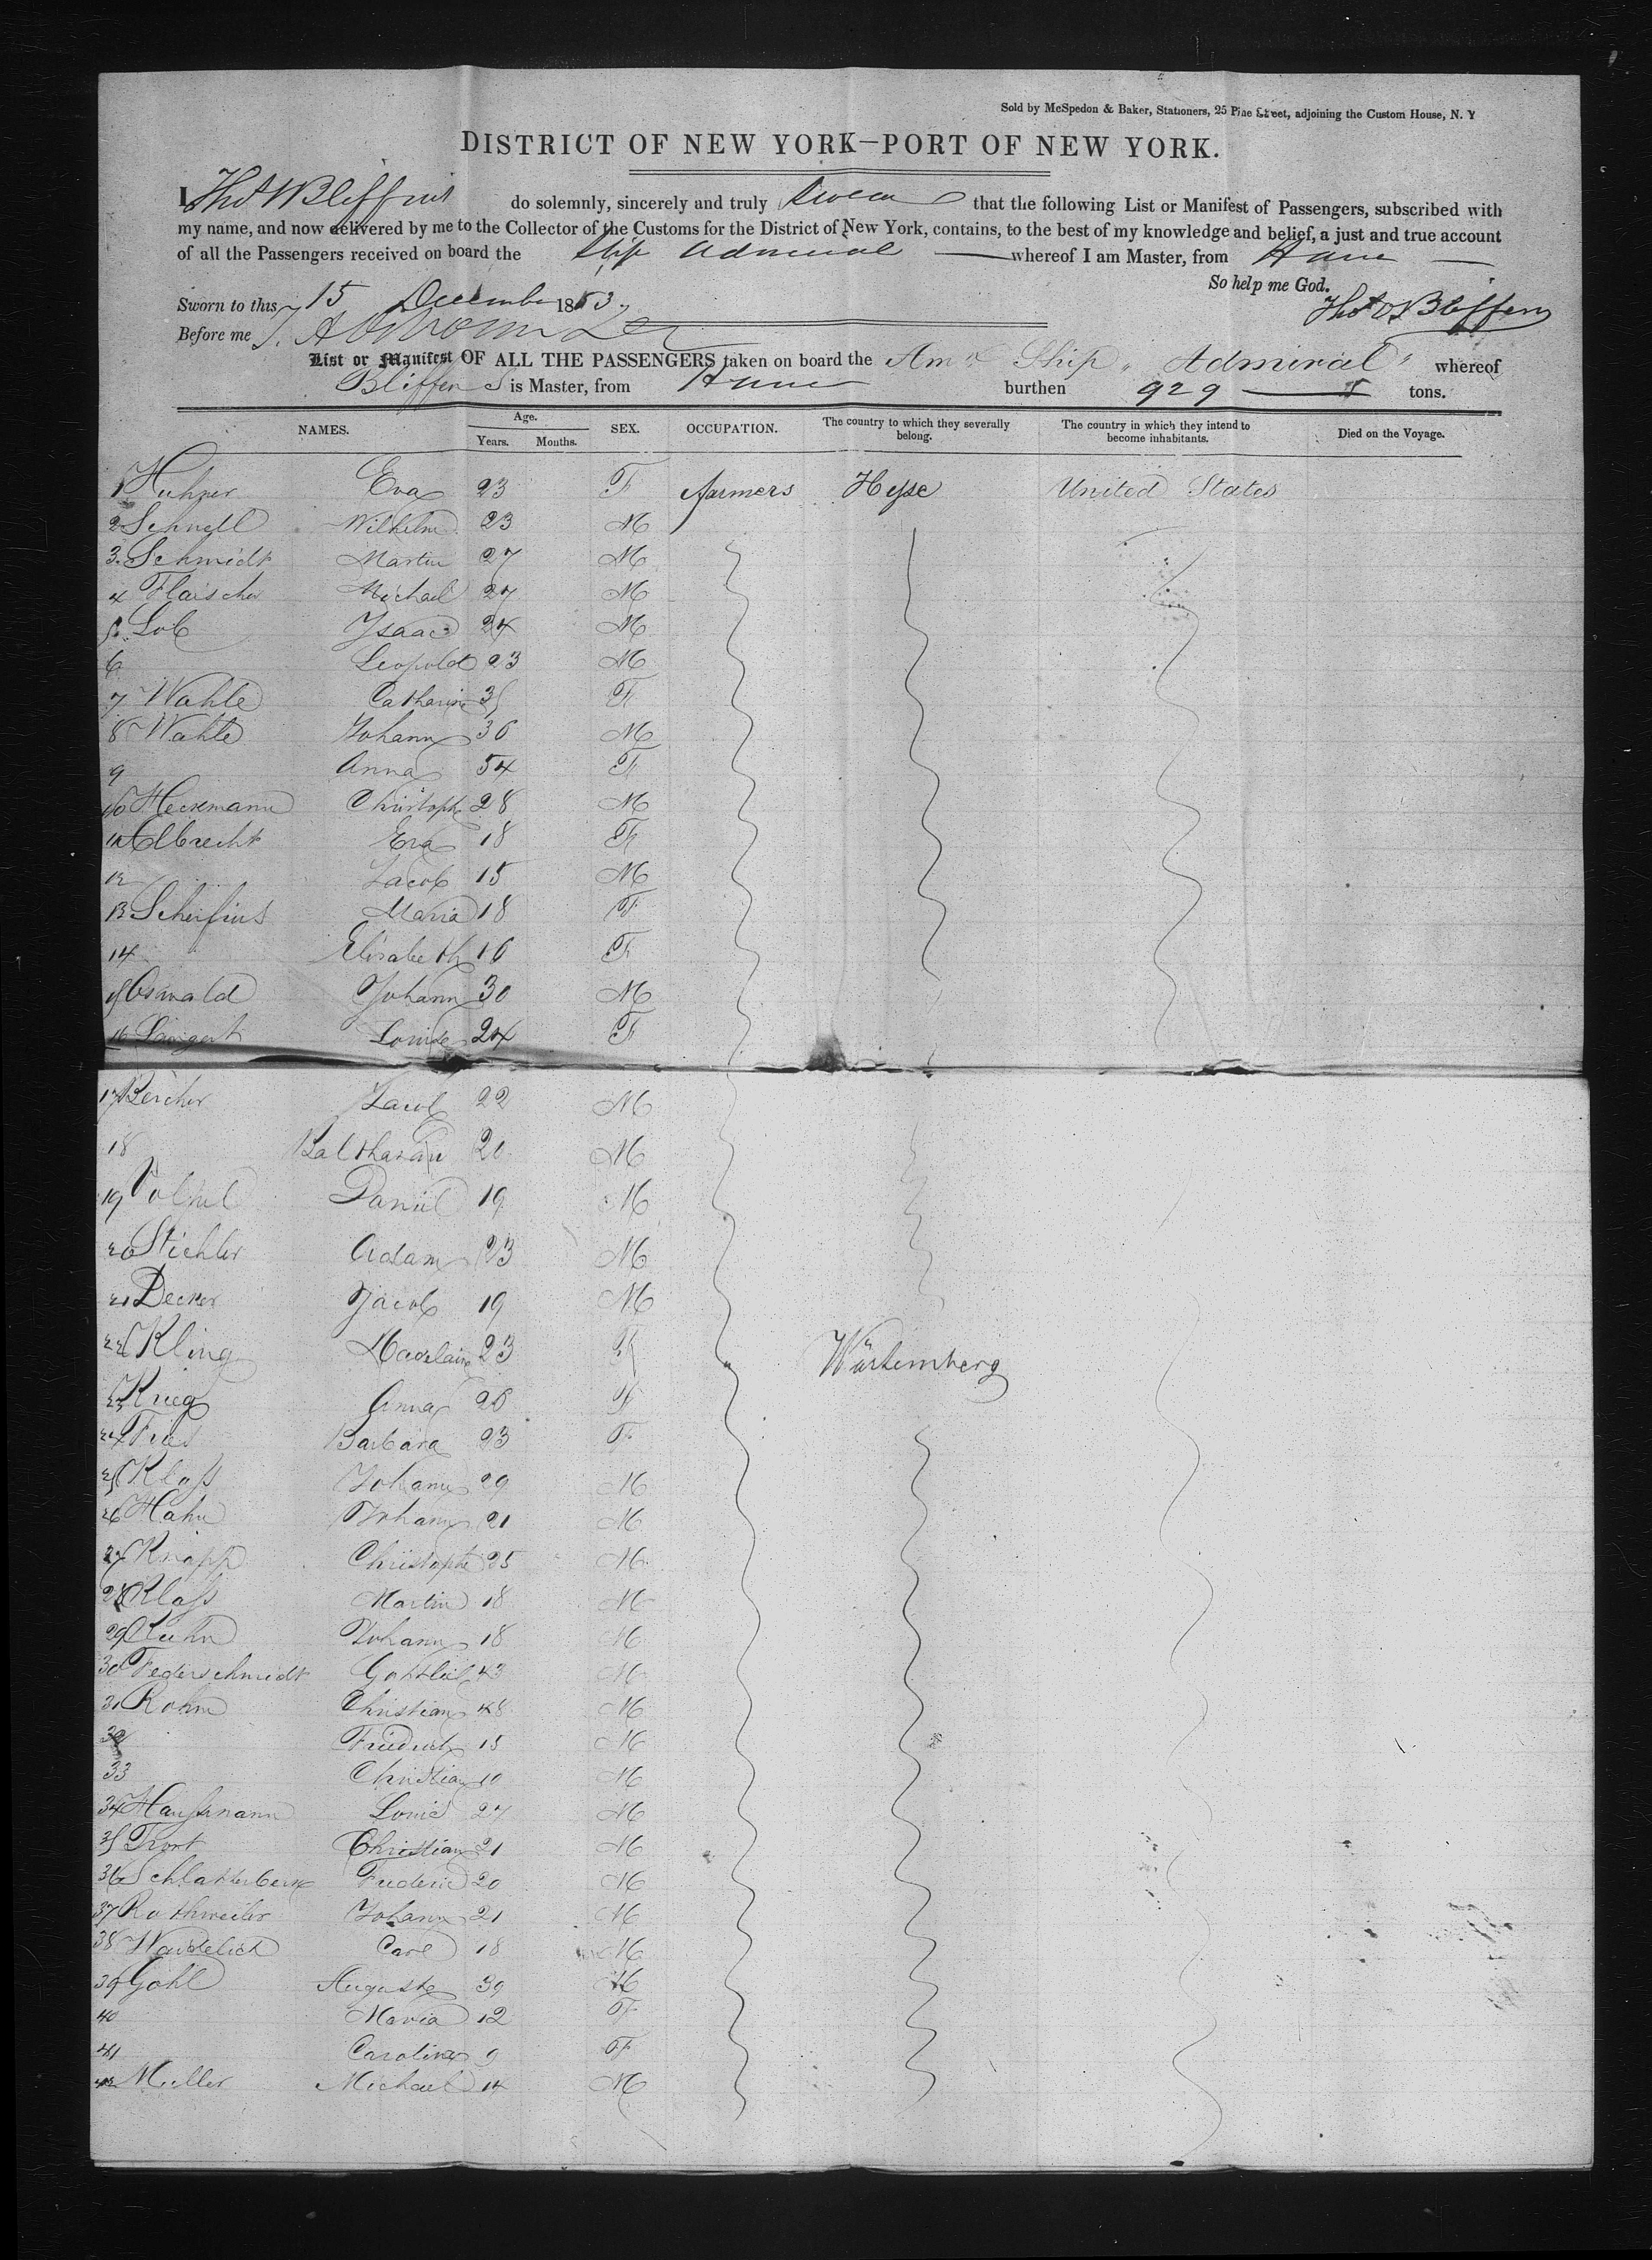 Sold by McSpedon & Baker, Stationers, 25 Pine Street, adjoining the Custom House, N. Y
DISTRICT OF NEW YORK—PORT OF NEW YORK.
I, do solemnly, sincerely and truly swear that the following List or Manifest of Passengers, subscribed with
my name, and now delivered by me to the Collector of the Customs for the District of New York, contains, to the best of my knowledge and belief, a just and true account
of all the Passengers received on board the Ship Admiral whereof I am Master, from Havre
So help me God.
Sworn to this 15 December 1853.
Before me
List or Manifest OF ALL THE PASSENGERS taken on board the Am Ship "Admiral" whereof
Bliffens is Master, from Havre burthen 929 tons.
NAMES. Age. SEX. OCCUPATION. The country to which they severally belong. The country in which they intend to become inhabitants. Died on the Voyage.
Years. Months.
1 Huhner Eva 23 F farmers Hesse United States
2 Schnell Wilhelm 23 M
3. Schmidt Martin 27 M
4 Flaischer Michael 27 M
5 Lob Isaac 24 M
6 Leopold 23 M
7 Wahle Catharine 35 F
8 Wahle Johann 36 M
9 Anna 54 F
10 Heckmann Christoph 28 M
11 Albrecht Eva 18 F
12 Jacob 15 M
13 Scherfius Maria 18 F
14 Elisabeth 16 F
15 Oswald Johann 30 M
16 Louise 24 F
17 Kercher Jacob 22 M
18 Balthasar 20 M
19 Daniel 19 M
20 Stichler Adam 23 M
21 Decker Jacob 19 M
22 Kling Madelaine 23 F Würtemberg
23 Krieg Anna 26 F
24 Barbara 23 F
25 Klass Johann 29 M
26 Hahn Johann 21 M
27 Knapp Christophe 25 M
28 Klass Martin 18 M
29 Kuhn Johann 18 M
30 Federschmidt Gottlieb 43 M
31 Rohm Christian 48 M
32 Friedrich 15 M
33 Christian 10 M
34 Haussmann Louis 27 M
35 Trost Christian 21 M
36 Schlatterbeck Frederic 20 M
37 Rothweiler Johann 21 M
38 Waidelich Carl 18 M
39 Gohl Auguste 39 M
40 Maria 12 F
41 Carolina 9 F
42 Muller Michael 14 M